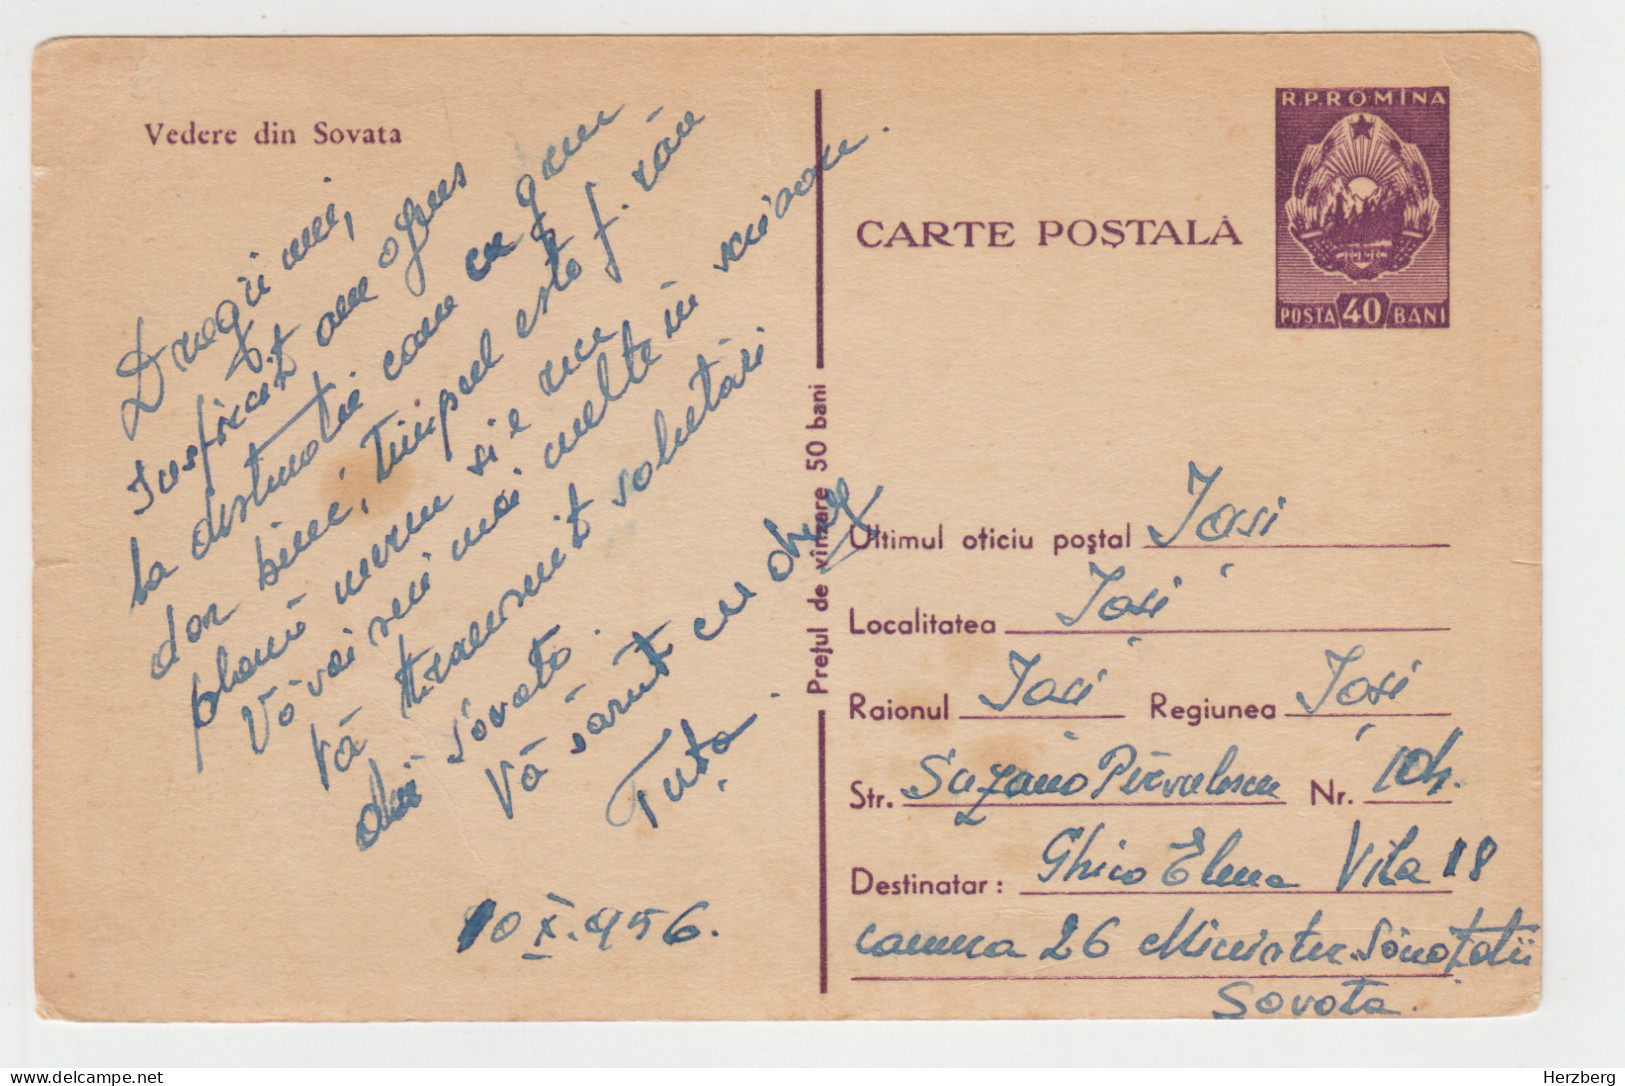 Vedere din Sovata
Dragii mei,
În sfîrșit am ajuns
la destinație cam cu greu
dar bine, timpul este f. rău
plouă mereu și e
Vă voi scri mai multe în scrisoare.
Vă transmit salutări
din Sovata.
Vă sărut cu drag
Tuța
10 X. 956.
Prețul de vînzare 50 bani
R.P.ROMINA
POSTA 40 BANI
CARTE POȘTALĂ
Ultimul oficiu poștal Iasi
Localitatea Iasi
Raionul Iasi Regiunea Iasi
Str. Pîrvulescu Nr. 104.
Destinatar: Ghica Elena Vila 18
camera 26 Minister. Sănatatii
Sovata.
delcampe.net
Herzberg